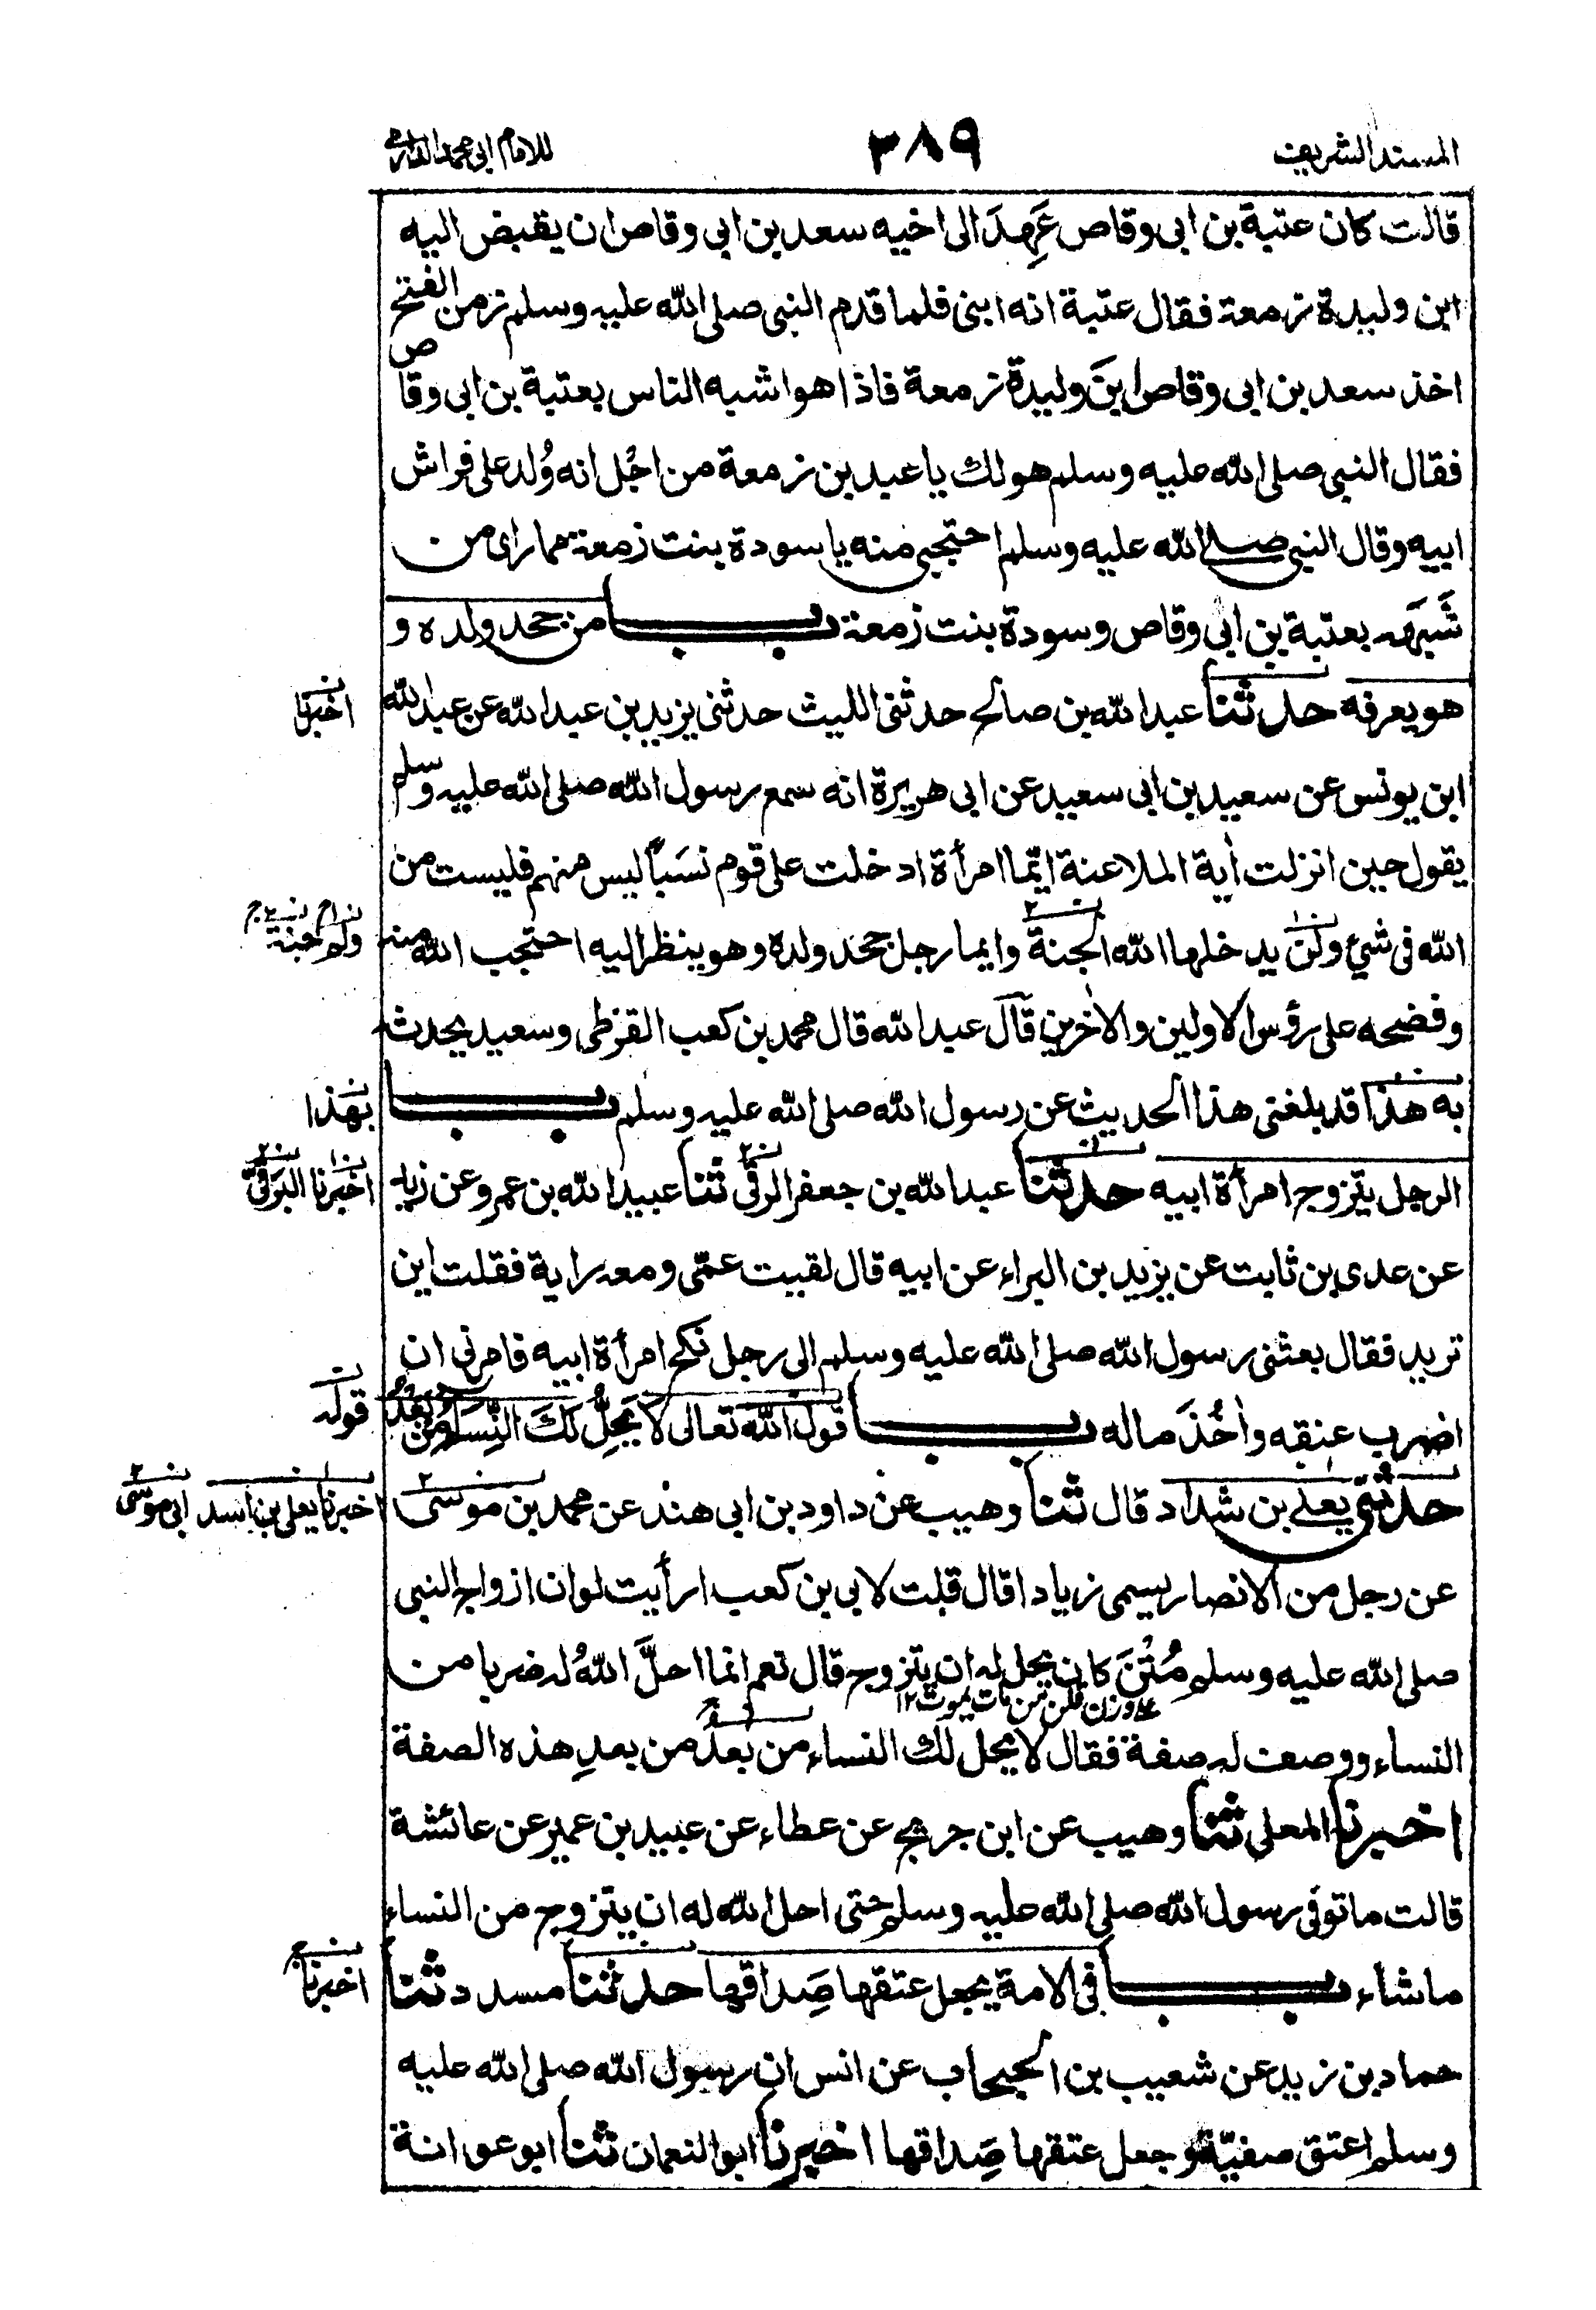 المسند الشريف ٣٨٩ للامام ابي محمد الدارمي
قالت كان عتبة بن ابي وقاص عَهِدَ الى اخيه سعد بن ابي وقاص ان يقبض اليه
ابن وليدة زمعة فقال عتبة انه ابنى فلما قدم النبى صلى الله عليه وسلم زمن الفتح
اخذ سعد بن ابى وقاص ابنَ وليدة زمعة فاذا هو اشبه الناس بعتبة بن ابى وقاص
فقال النبى صلى الله عليه وسلم هو لك يا عبد بن زمعة من اجُل انه وُلد على فراش
ابيه وقال النبى صلى الله عليه وسلم احتجبى منه يا سودة بنت زمعة مما راى من
شَبَهه بعتبة بن ابى وقاص وسودة بنت زمعة باب من جحد ولده و
هو يعرفه حدثنا عبد الله بن صالح حدثنى الليث حدثنى يزيد بن عبد الله عن عبد الله
اخبرنا
ابن يونس عن سعيد بن ابى سعيد عن ابى هريرة انه سمع رسول الله صلى الله عليه وسلم
يقول حين انزلت أية الملاعنة ايّما امرأة ادخلت على قوم نسَباً ليس منهم فليست من
الله فى شئ ولن يدخلها الله الجنة وايما رجل جحَد ولده وهو ينظر اليه احتجب الله منه
ولم جنة
وفضحه على رؤس الاولين والاخرين قال عبد الله قال محمد بن كعب القرظى وسعيد يحدث
به هذا قد بلغنى هذا الحديث عن رسول الله صلى الله عليه وسلم باب
بهذا
الرجل يتزوج امرأة ابيه حدثنا عبد الله بن جعفر الرقى ثنا عبيد الله بن عمرو عن زيد
اخبرنا البَرَقىّ
عن عدى بن ثابت عن يزيد بن البراء عن ابيه قال لقيت عمّى ومعه راية فقلت اين
تريد فقال بعثنى رسول الله صلى الله عليه وسلم الى رجل نكح امرأة ابيه فامرنى ان
اضرب عنقه واٰخُذَ ماله باب قول الله تعالى لَا يَحِلُّ لَكَ النِّسَاءُ مِنْ بَعْدُ
قوله
حدثنى يعلى بن شداد قال ثنا وهيب عن داود بن ابى هند عن محمد بن موسى
اخبرنا يعلى بن اسد ابى موسى
عن رجل من الانصار يسمى زيادا قال قلت لابى بن كعب ارأيت لو ان ازواج النبى
صلى الله عليه وسلم مُتْنَ كان يحل له ان يتزوج قال نعم انما احلَّ اللهُ له ضربا من
النساء ووصف له صفة فقال لا يحل لك النساء من بعدُ من بعدِ هذه الصفة
اخبرنا المعلى ثنا وهيب عن ابن جريج عن عطاء عن عبيد بن عمير عن عائشة
قالت ما توفى رسول الله صلى الله عليه وسلم حتى احل الله له ان يتزوج من النساء
ما شاء باب فى الامة يجعل عتقها صَداقها حدثنا مسدد ثنا
اخبرنا
حماد بن زيد عن شعيب بن الحبحاب عن انس ان رسول الله صلى الله عليه
وسلم اعتق صفيّة وجعل عتقها صَداقها اخبرنا ابو النعمان ثنا ابو عوانة